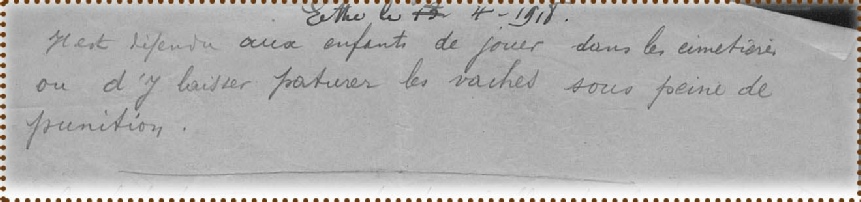 Ethe le 4-1918.
Il est défendu aux enfants de jouer dans les cimetières
ou d'y laisser paturer les vaches sous peine de
punition.